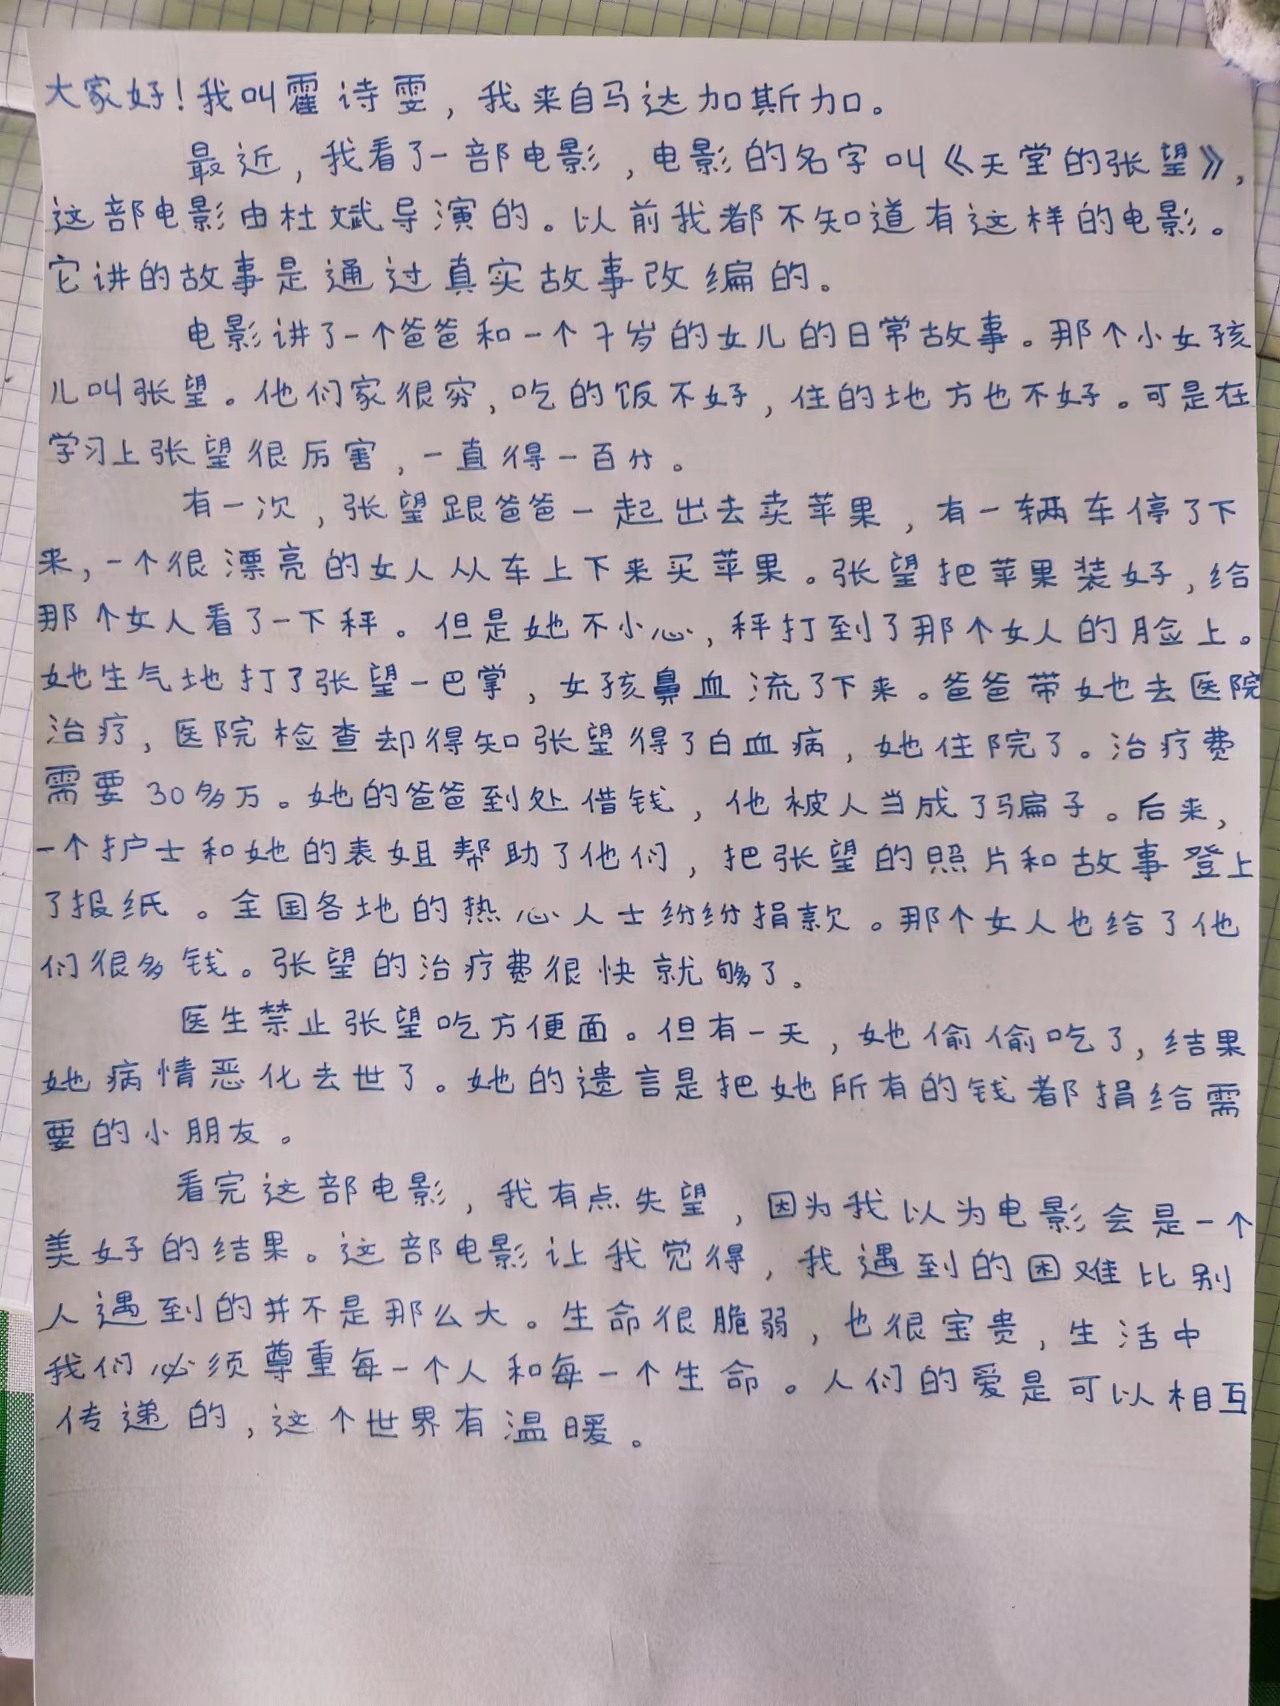 大家好！我叫霍诗雯，我来自马达加斯加。
最近，我看了一部电影，电影的名字叫《天堂的张望》，
这部电影由杜斌导演的。以前我都不知道有这样的电影。
它讲的故事是通过真实故事改编的。
电影讲了一个爸爸和一个7岁的女儿的日常故事。那个小女孩
儿叫张望。他们家很穷，吃的饭不好，住的地方也不好。可是在
学习上张望很厉害，一直得一百分。
有一次，张望跟爸爸一起出去卖苹果，有一辆车停了下
来，一个很漂亮的女人从车上下来买苹果。张望把苹果装好，给
那个女人看了一下秤。但是她不小心，秤打到了那个女人的脸上。
她生气地打了张望一巴掌，女孩鼻血流了下来。爸爸带她去医院
治疗，医院检查却得知张望得了白血病，她住院了。治疗费
需要30多万。她的爸爸到处借钱，他被人当成了骗子。后来，
一个护士和她的表姐帮助了他们，把张望的照片和故事登上
了报纸。全国各地的热心人士纷纷捐款。那个女人也给了他
们很多钱。张望的治疗费很快就够了。
医生禁止张望吃方便面。但有一天，她偷偷吃了，结果
她病情恶化去世了。她的遗言是把她所有的钱都捐给需
要的小朋友。
看完这部电影，我有点失望，因为我以为电影会是一个
美好的结果。这部电影让我觉得，我遇到的困难比别
人遇到的并不是那么大。生命很脆弱，也很宝贵，生活中
我们必须尊重每一个人和每一个生命。人们的爱是可以相互
传递的，这个世界有温暖。